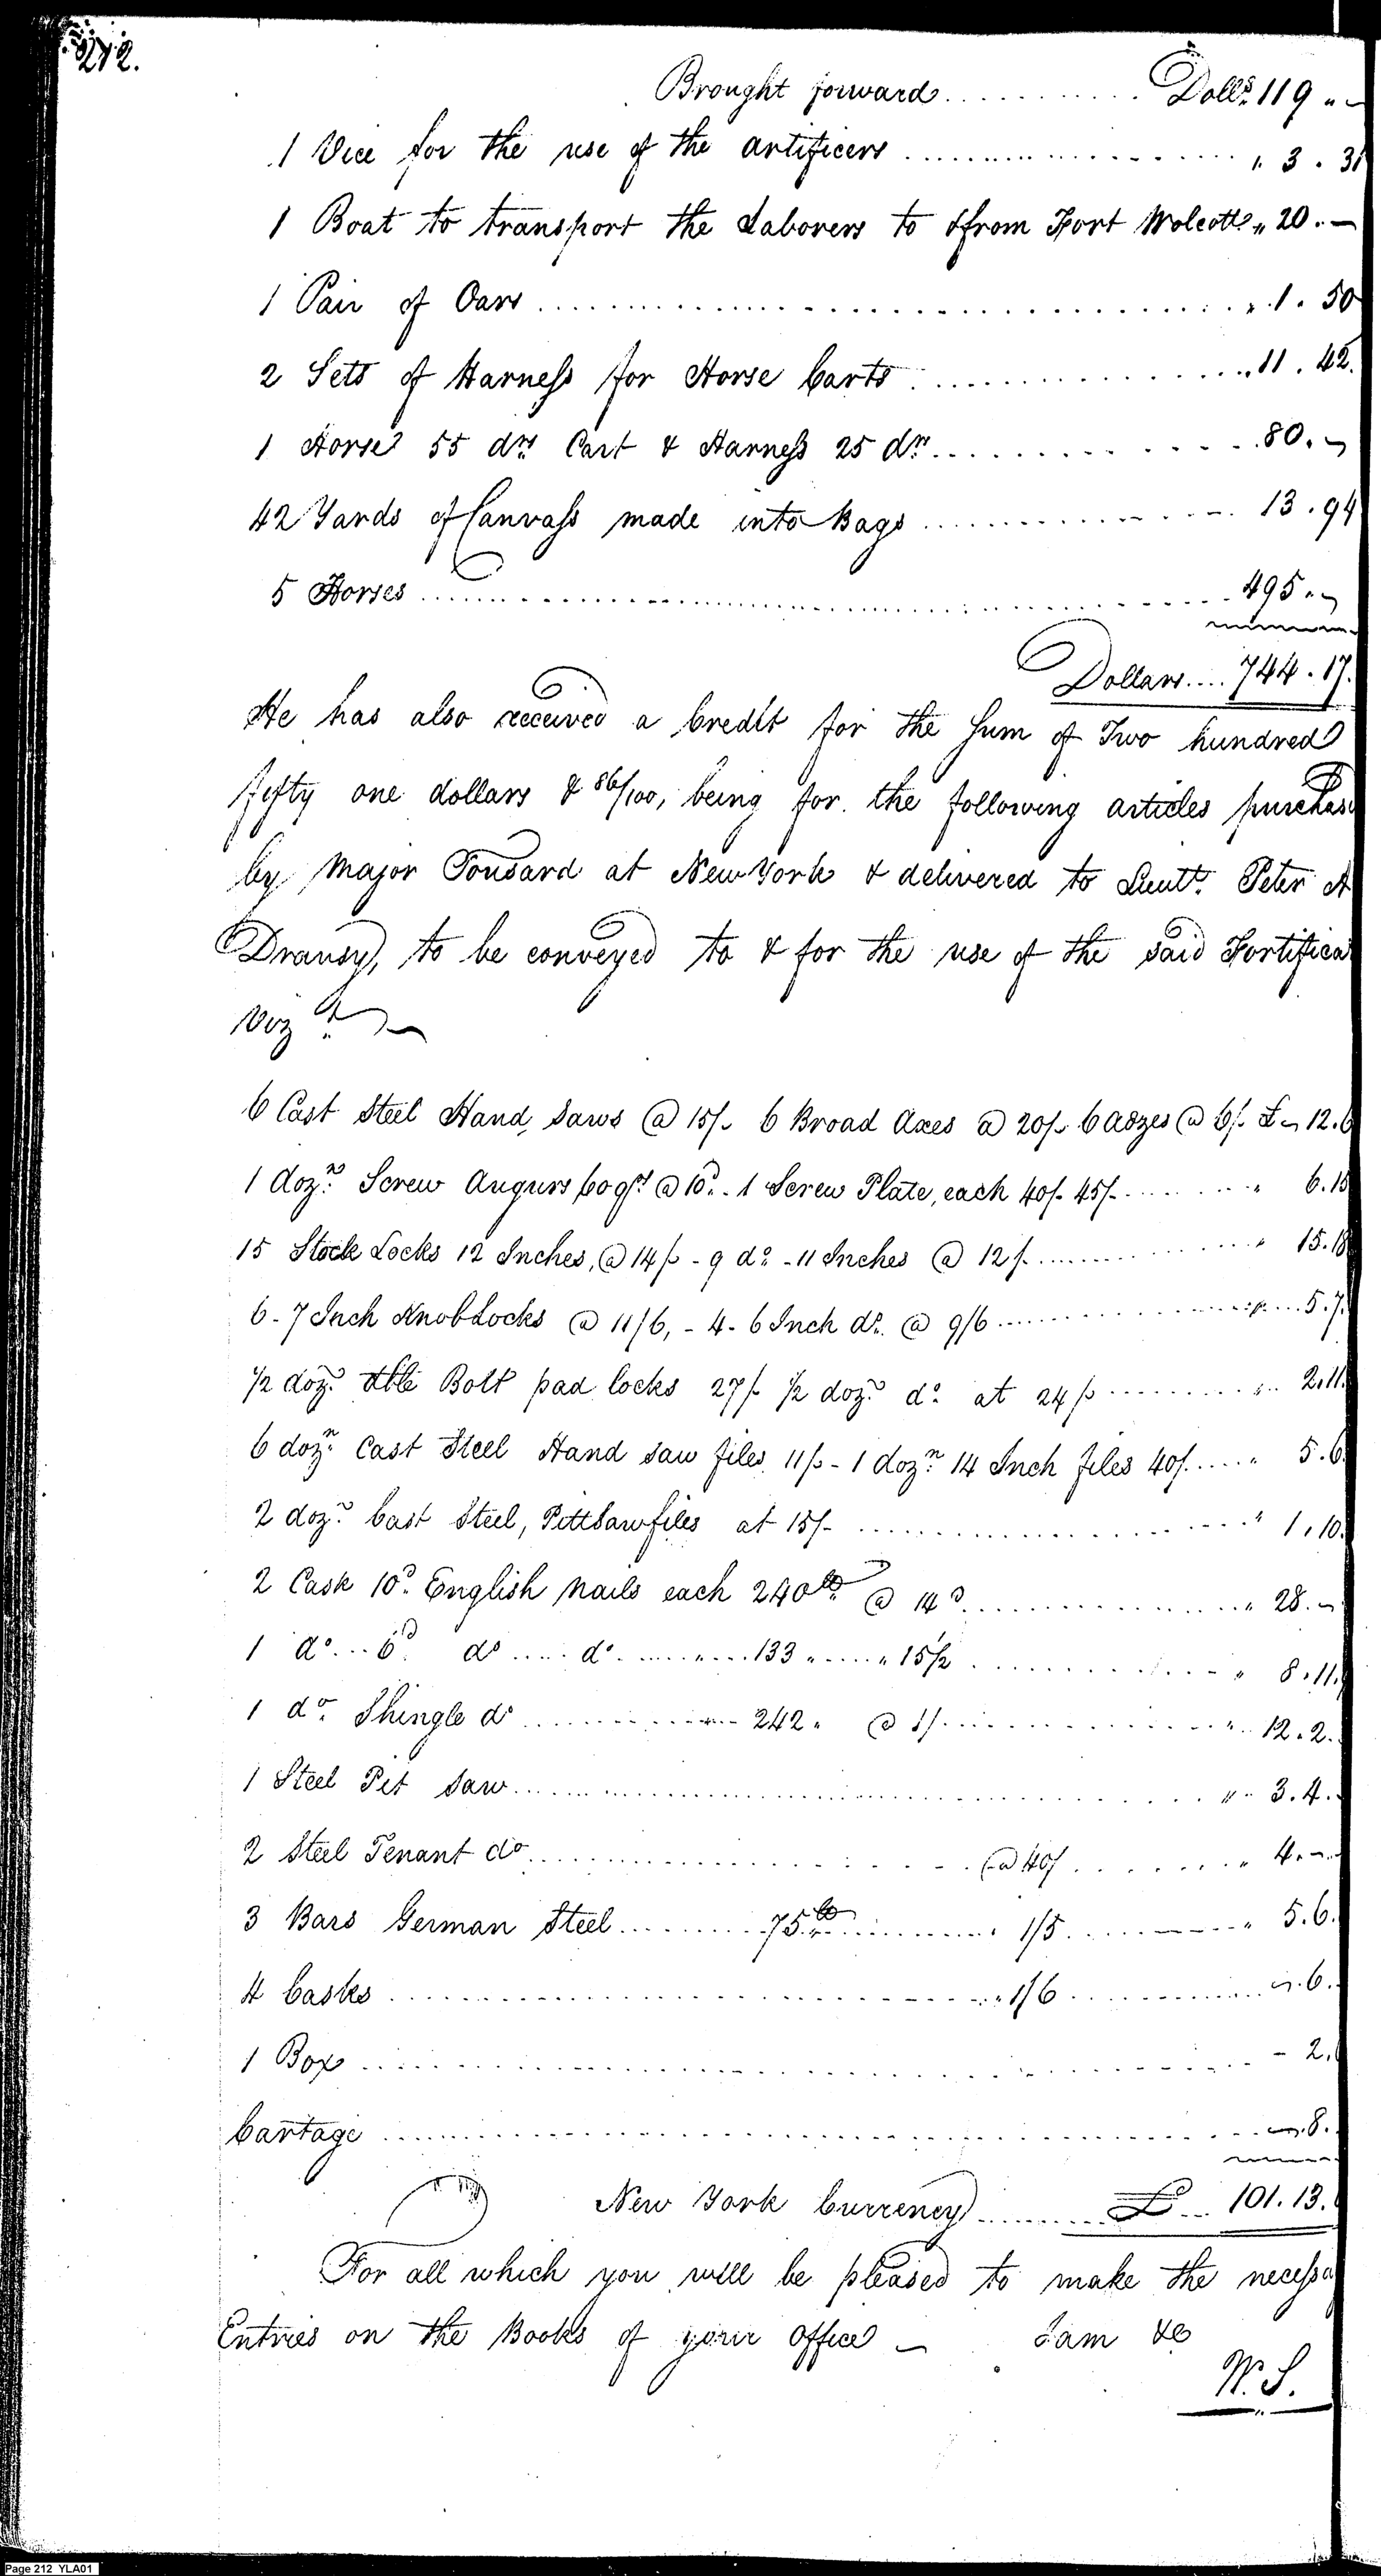 212.
Brought forward ............ Dolls. 119 " –
1 Vice for the use of the artificers .................... " 3 . 31
1 Boat to transport the Laborers to & from Fort Wolcott " 20 . –
1 Pair of Oars .................... " 1 . 50
2 Sets of Harness for Horse Carts .................... 11 . 42.
1 Horse 55 drs. Cart & Harness 25 drs. .................... 80. –
42 Yards of Canvass made into Bags .................... 13 . 94
5 Horses .................... 495. –
Dollars .... 744 . 17.
He has also received a Credit for the Sum of Two hundred
fifty one dollars & 86/100, being for the following articles purchas
by Major Tousard at New York & delivered to Lieutt. Peter A
Dransy, to be conveyed to & for the use of the said Fortifica
Vizt.
6 Cast Steel Hand Saws @ 15/- 6 Broad Axes @ 20/- 6 Adzes @ 6/- £ – 12.6
1 dozn. Screw Augurs 60 qrs @ 10d. - 1 Screw Plate, each 40/- 45/- ........ " 6.15
15 Stock Locks 12 Inches, @ 14/- - 9 do. - 11 Inches @ 12/- ........ " 15.18
6 - 7 Inch Knob Locks @ 11/6, - 4 - 6 Inch do. @ 9/6 ........ " 5.7.
1/2 dozn. dble Bolt pad locks 27/- 1/2 dozn. do. at 24/- ........ " 2.11.
6 dozn. Cast Steel Hand saw files 11/- - 1 dozn. 14 Inch files 40/- ..... " 5.6.
2 dozn. Cast Steel, Pitt Saw files at 15/- .................... " 1.10.
2 Cask 10d. English Nails each 240 lb. @ 14d. .................... " 28. –
1 do. .. 6d. do ..... do. ........ 133 " ..... " 15 1/2 .................... " 8.11.
1 do. Shingle do ............ 242 " @ 1/- .................... " 12.2.
1 Steel Pit Saw .................... " 3.4.
2 Steel Tenant do .................... @ 40/ ........ " 4. –
3 Bars German Steel ........ 75 lb ............ " 1/5 ............ " 5.6.
4 Casks .................... " 1/6 ............ – . 6.
1 Box .................... – 2.
Cartage .................... – . 8.
New York Currency ........ £ ... 101 . 13.
For all which you will be pleased to make the necessa
Entries on the Books of your Office – I am &c
W. S.
Page 212 YLA01